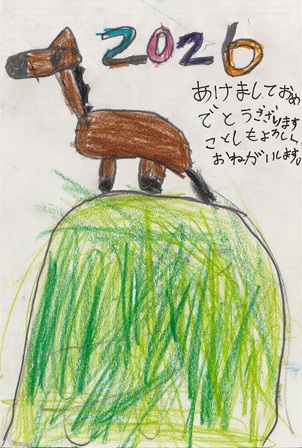 2026
あけましておめ
でとうございます
ことしもよろしく
おねがいします。